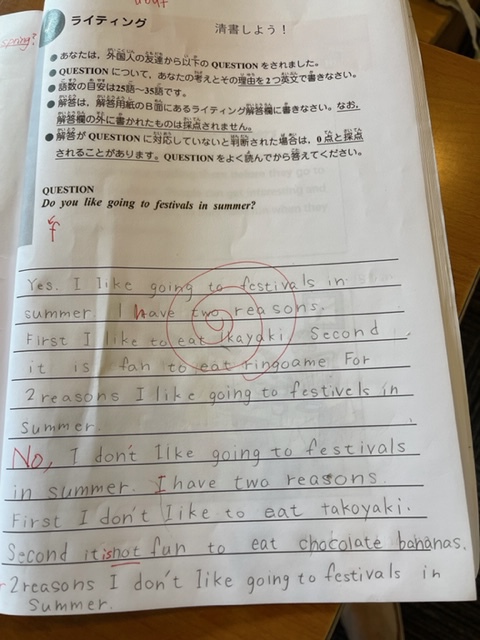 spring?
ライティング
清書しよう！
● あなたは，外国人の友達から以下の QUESTION をされました。
● QUESTION について，あなたの考えとその理由を2つ英文で書きなさい。
● 語数の目安は25語〜35語です。
● 解答は，解答用紙のB面にあるライティング解答欄に書きなさい。なお，
解答欄の外に書かれたものは採点されません。
● 解答が QUESTION に対応していないと判断された場合は，0点と採点
されることがあります。QUESTION をよく読んでから答えてください。
QUESTION
Do you like going to festivals in summer?
Yes. I like going to festivals in
summer. I have two reasons.
First I like to eat Ikayaki. Second
it is fan to eat ringoame For
2 reasons I like going to festivels in
summer.
No, I don't like going to festivals
in summer. I have two reasons.
First I don't like to eat takoyaki.
Second it is not fun to eat chocolate bananas.
2 reasons I don't like going to festivals in
summer.